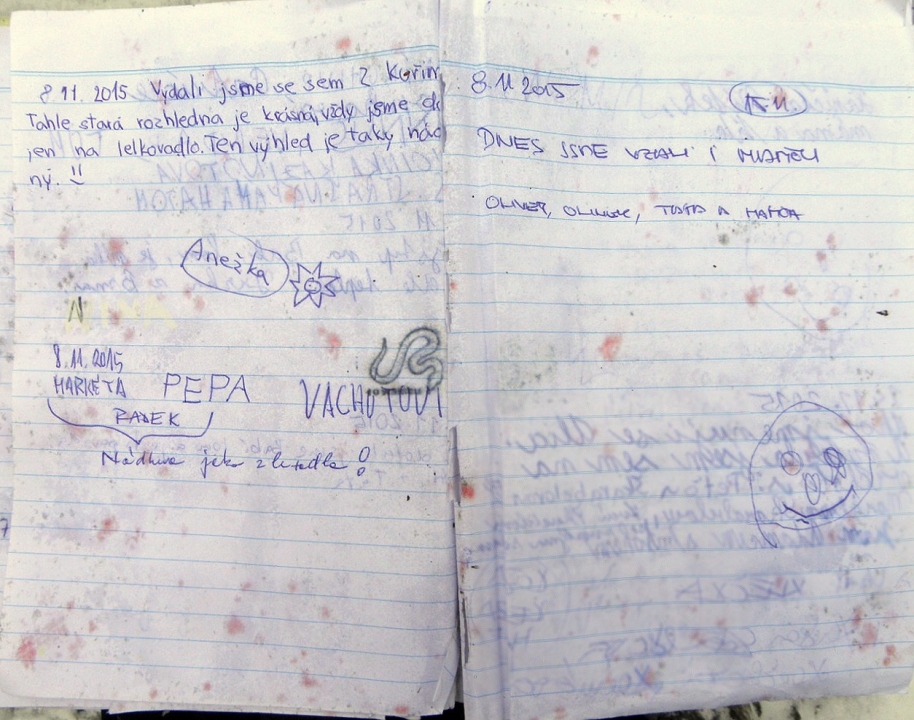 8.11. 2015 Vydali jsme se sem z Kořín
Tahle stará rozhledna je krásná, vždy jsme do
jen na lelkovadlo. Ten výhled je taky nád
ný.
Anežka
N
8.11.2015
MARKÉTA PEPA VACHUTOVI
RADEK
Nádhera jako z letadla!
8.11 2015
DNES JSME VZALI I
OLIVER, TÁTA A MÁMA